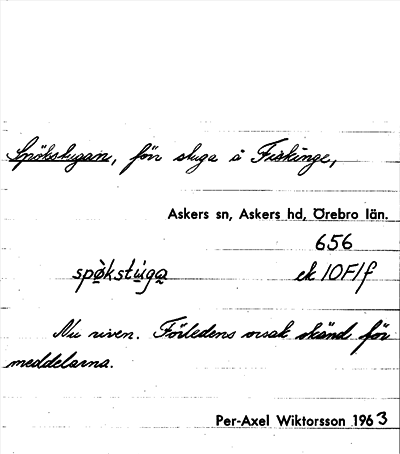 Spökstugan, förr stuga å Fiskinge,
Askers sn, Askers hd, Örebro län.
656
spö̀kstúga ek 10F1f
Nu riven. Förledens orsak okänd för
meddelarna.
Per-Axel Wiktorsson 1963